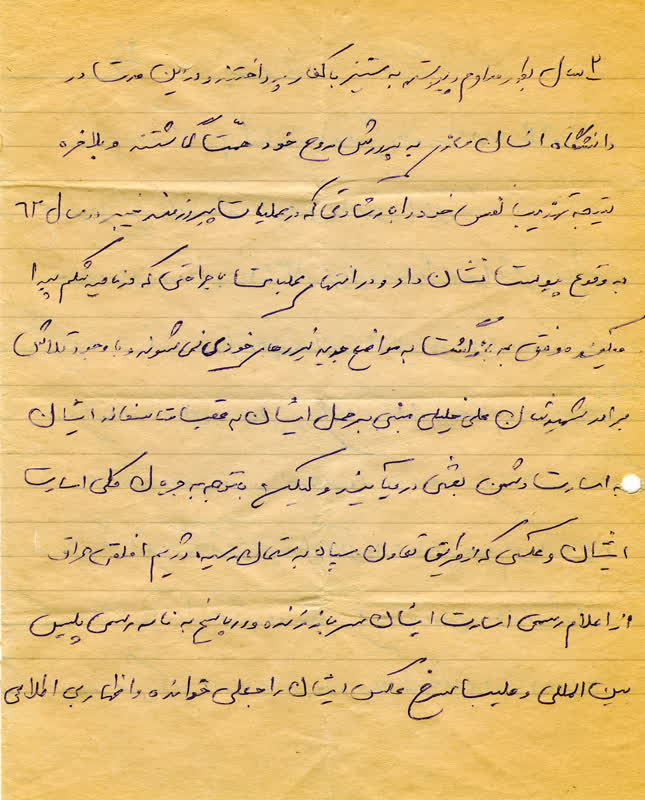 ۲ سال بطور مداوم و پیوسته به ستیز با کفار پرداختند و در این مدت در
دانشگاه انسان سازی به پرورش روح خود همت گماشتند و بلاخره
نتیجه تهذیب نفس خود را با رشادتی که در عملیات پیروزمند خیبر در سال ۶۲
به وقوع پیوست نشان داد و در انتهای عملیات با جراحتی که در ناحیه شکم پیدا
میکنند موفق به بازگشت به مواضع جدید نیروهای خودی نمی شوند و با وجود تلاش
برادر شهیدشان علی خلیلی مبنی بر حمل ایشان به عقب متاسفانه ایشان
به اسارت دشمن بعثی در می‌آیند ولیکن با توجه به جدول کلی اسارت
ایشان و عکسی که از طریق تعاون سپاه بدستمان رسید، رژیم افلقی عراق
از اعلام رسمی اسارت ایشان سر باز زده و در پاسخ به نامه رسمی پلیس
بین المللی و صلیب سرخ عکس ایشان را جعلی خوانده و اظهار بی اطلاعی